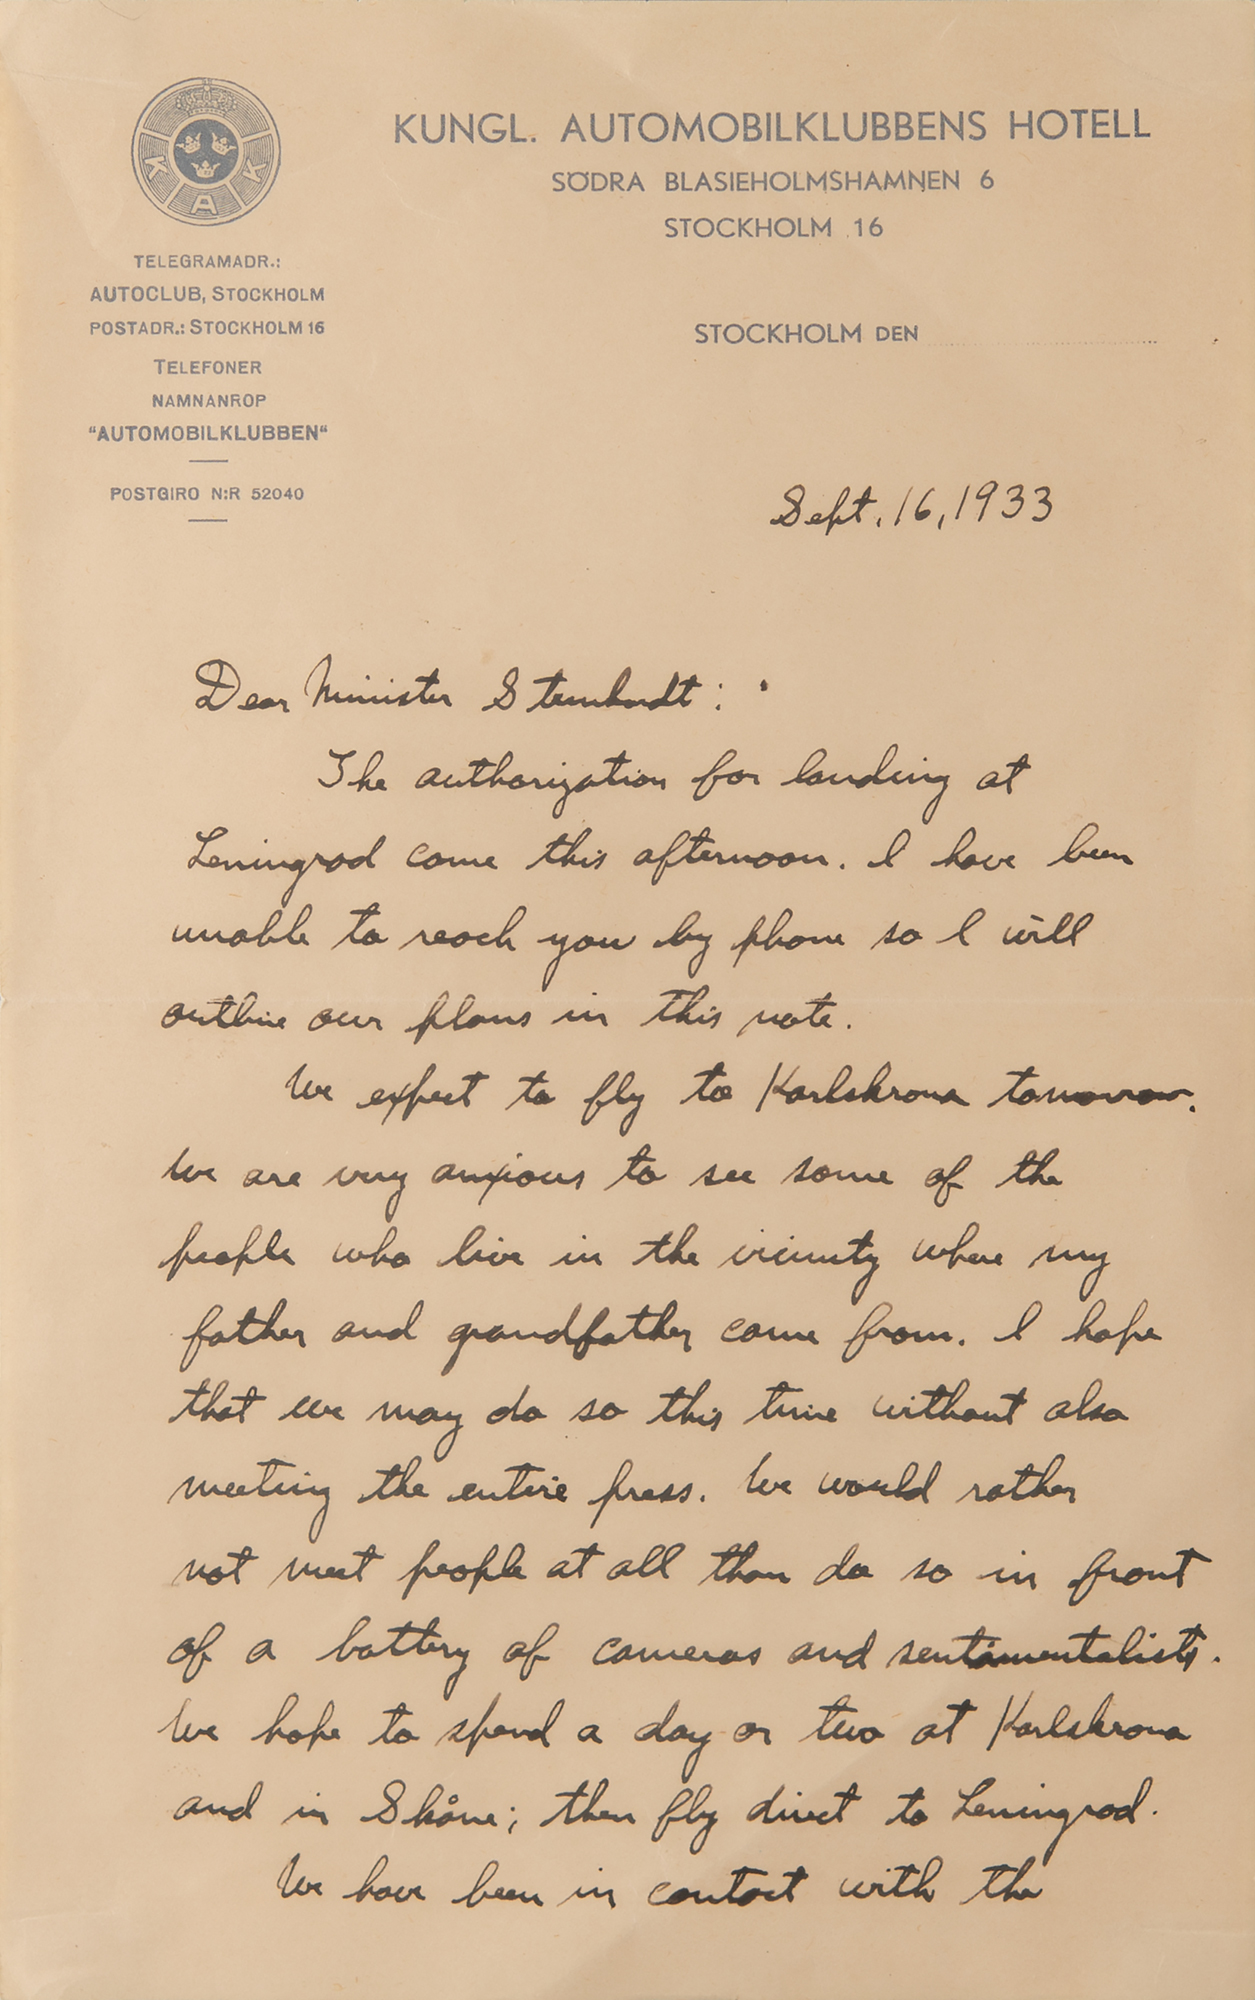 KAK
KUNGL. AUTOMOBILKLUBBENS HOTELL
SÖDRA BLASIEHOLMSHAMNEN 6
STOCKHOLM 16
TELEGRAMADR.:
AUTOCLUB, STOCKHOLM
POSTADR.: STOCKHOLM 16
TELEFONER
NAMNANROP
"AUTOMOBILKLUBBEN"
POSTGIRO N:R 52040
STOCKHOLM DEN
Sept. 16, 1933
Dear Minister Steinhardt:
The authorization for landing at
Leningrad came this afternoon. I have been
unable to reach you by phone so I will
outline our plans in this note.
We expect to fly to Karlskrona tomorrow.
We are very anxious to see some of the
people who live in the vicinity where my
father and grandfather came from. I hope
that we may do so this time without also
meeting the entire press. We would rather
not meet people at all than do so in front
of a battery of cameras and sentimentalists.
We hope to spend a day or two at Karlskrona
and in Skåne; then fly direct to Leningrad.
We have been in contact with the